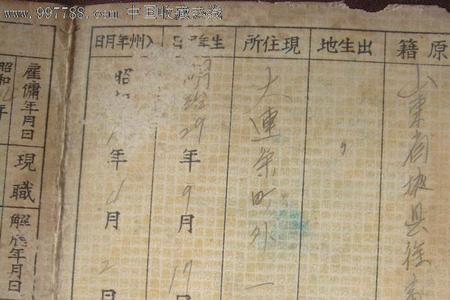 www.997788.com 中国收藏热线
原籍
山東省掖县徐
出生地
〃
現住所
大連
町外一
生年月日
明治29年9月17
入州年月日
昭
年
月2
雇傭年月日
昭和
年
現職
年月日